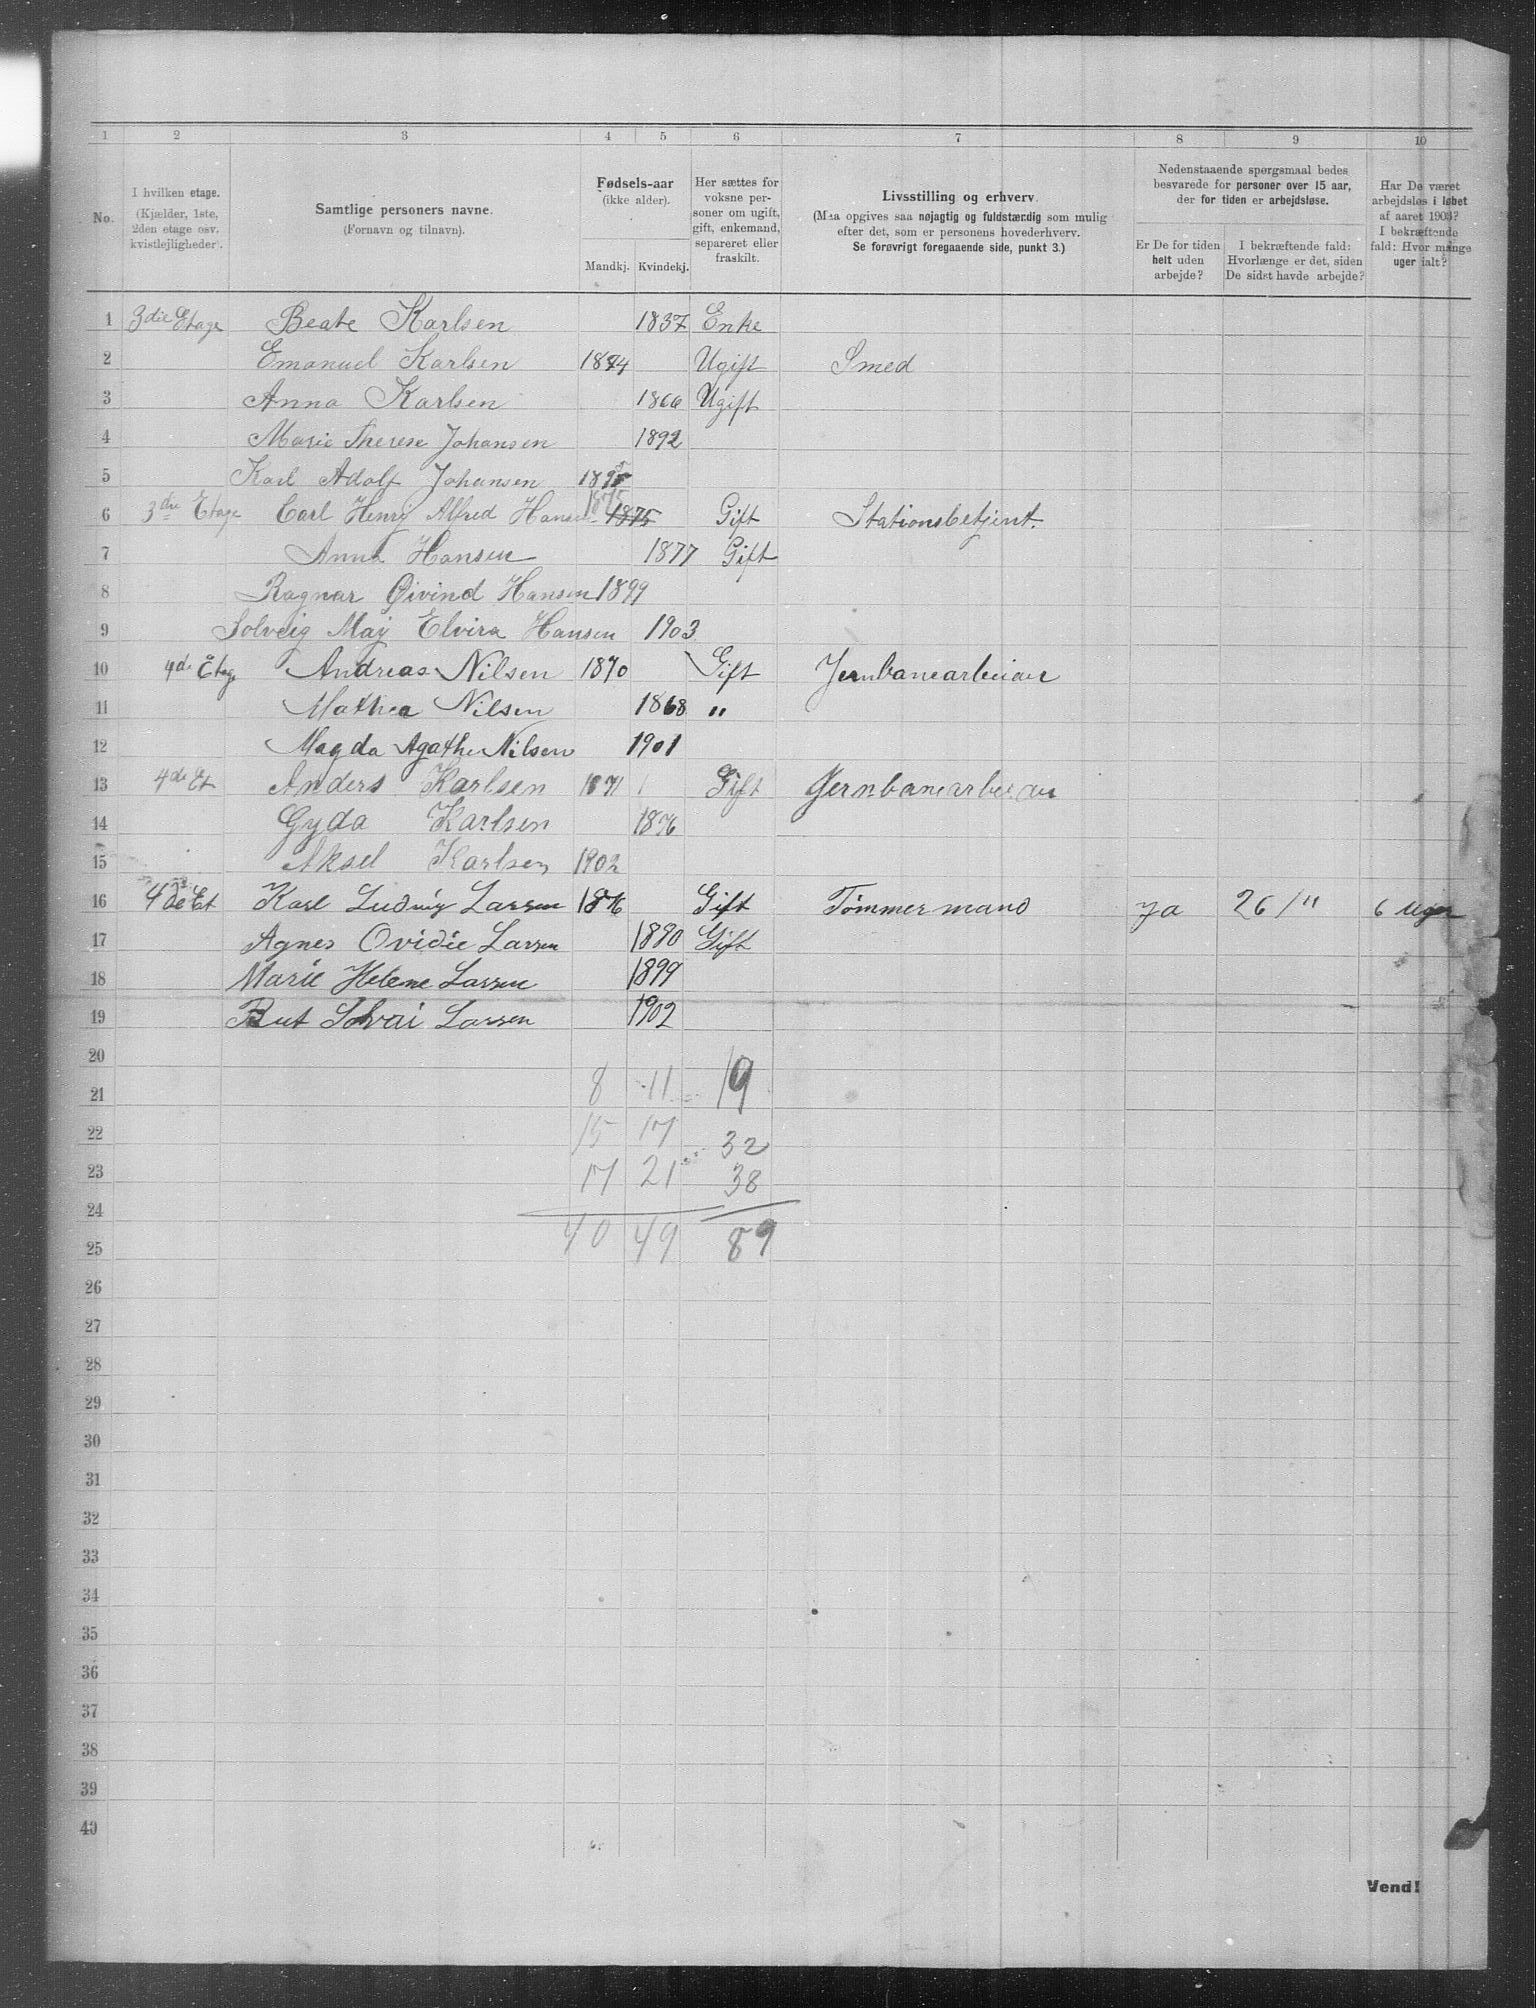 1 2 3 4 5 6 7 8 9 10
No.
I hvilken etage.
(Kjælder, 1ste,
2den etage osv.
kvistlejligheder).
Samtlige personers navne.
(Fornavn og tilnavn).
Fødsels-aar
(ikke alder).
Mandkj. Kvindekj.
Her sættes for
voksne per-
soner om ugift,
gift, enkemand,
separeret eller
fraskilt.
Livsstilling og erhverv.
(Maa opgives saa nøjagtig og fuldstændig som mulig
efter det, som er personens hovederhverv.
Se forøvrigt foregaaende side, punkt 3.)
Nedenstaaende spørgsmaal bedes
besvarede for personer over 15 aar,
der for tiden er arbejdsløse.
Er De for tiden
helt uden
arbejde?
I bekræftende fald:
Hvorlænge er det, siden
De sidst havde arbejde?
Har De været
arbejdsløs i løbet
af aaret 1903?
I bekræftende
fald: Hvor mange
uger ialt?
1 3die Etage Beate Karlsen 1837 Enke
2 Emanuel Karlsen 1874 Ugift Smed
3 Anna Karlsen 1866 Ugift
4 Marie Therese Johansen 1892
5 Karl Adolf Johansen 1895
6 3die Etage Carl Henry Alfred Hansen 1875 1875 Gift Stationsbetjent.
7 Anna Hansen 1877 Gift
8 Ragnar Øivind Hansen 1899
9 Solveig Maj Elvira Hansen 1903
10 4de Etage Andreas Nilsen 1870 Gift Jernbanearbeider
11 Mathea Nilsen 1868 "
12 Magda Agathe Nilsen 1901
13 4de Et Anders Karlsen 1871 Gift Jernbanearbeider
14 Gyda Karlsen 1876
15 Aksel Karlsen 1902
16 4de Et Karl Ludvig Larsen 1876 Gift Tømmermand ja 26/11 6 Uger
17 Agnes Ovidie Larsen 1880 Gift
18 Marie Helene Larsen 1899
19 Rut Solvai Larsen 1902
20
21 8 11 19
22 15 17 32
23 17 21 38
24
25 40 49 89
26
27
28
29
30
31
32
33
34
35
36
37
38
39
40
Vend!